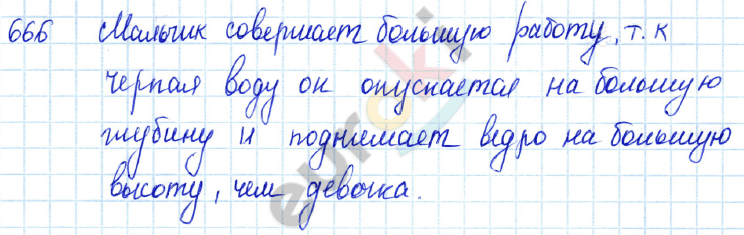 666 Мальчик совершает большую работу, т.к
черпая воду он опускается на большую
глубину и поднимает ведро на большую
высоту, чем девочка.
euroki